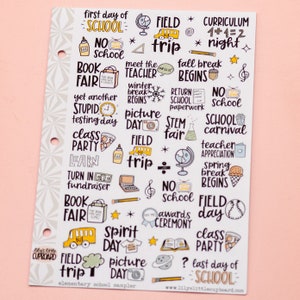 first day of SCHOOL
FIELD trip
CURRICULUM
1+1=2
night
NO school
BOOK FAIR
meet the TEACHER
fall break BEGINS
winter break BEGINS
RETURN SCHOOL paperwork
NO school
yet another STUPID testing day
picture DAY
STEM fair
SCHOOL carnival
class PARTY
FIELD trip
teacher APPRECIATION
LEARN
TURN IN fundraiser
NO SCHOOL
spring break BEGINS
BOOK FAIR
FIELD day
awards CEREMONY
Spirit DAY
class PARTY
little lily's CUPBOARD
FIELD trip
picture DAY
? last day of SCHOOL
elementary school sampler
www.lilyslittlecupboard.com